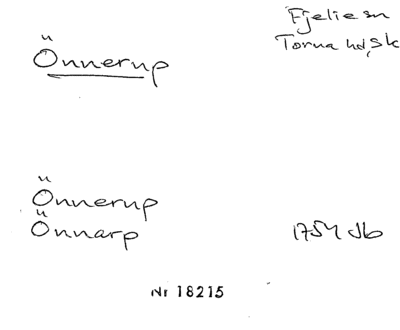 Önnerup
Fjelie sn
Torna hd, Sk
Önnerup
Önnarp
1754 Jb
Nr 18215